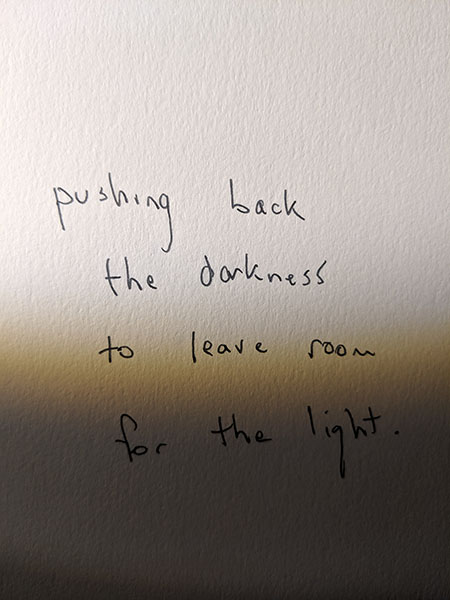 pushing back
the darkness
to leave room
for the light.